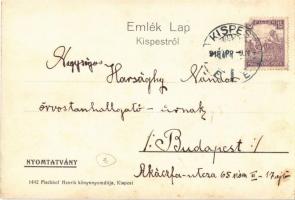 Emlék Lap
Kispestről
KISPEST
Nagyságos
Harsághy Nándor
orvostanhallgató - úrnak
/: Budapest :/
Akácfa-utcza 65 szám II - 17 ajtó
NYOMTATVÁNY
1442 Fischhof Henrik könyvnyomdája, Kispest